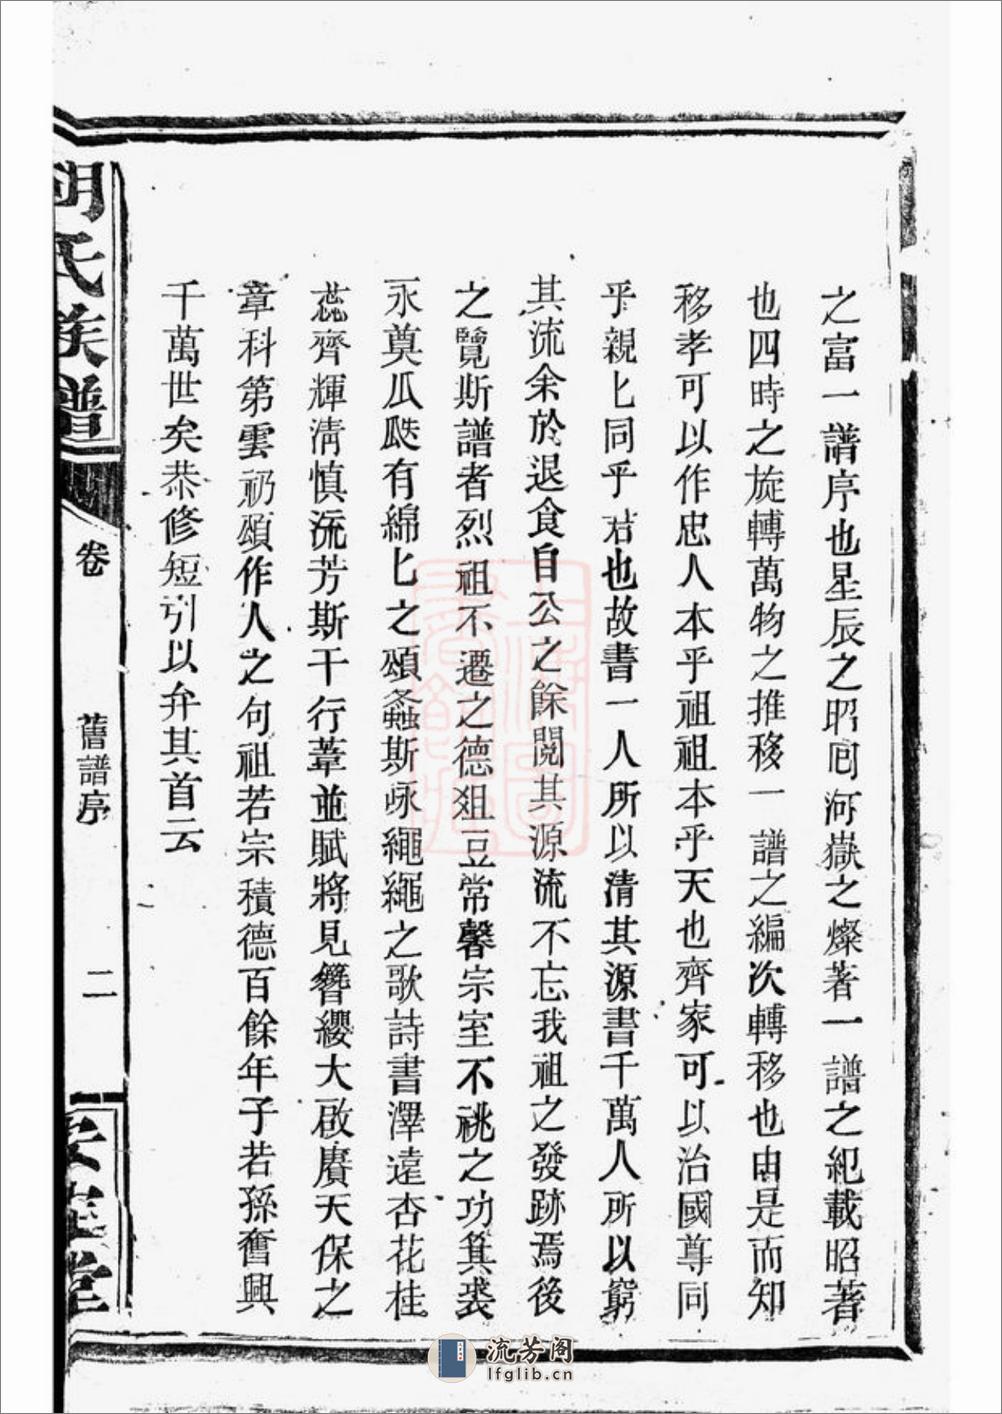 之富一譜序也星辰之昭回河嶽之燦著一譜之紀載昭著
也四時之旋轉萬物之推移一譜之編次轉移也由是而知
移孝可以作忠人本乎祖祖本乎天也齊家可以治國尊同
乎親匕同乎君也故書一人所以清其源書千萬人所以窮
其流余於退食自公之餘閱其源流不忘我祖之發跡焉後
之覽斯譜者烈祖不遷之德俎豆常馨宗室不祧之功箕裘
永奠瓜瓞有綿匕之頌螽斯咏繩繩之歌詩書澤遠杏花桂
蕊齊輝清慎流芳斯干行葦並賦將見簪纓大啟賡天保之
章科第雲礽頌作人之句祖若宗積德百餘年子若孫奮興
千萬世矣恭修短引以弁其首云
胡氏族譜
卷
舊譜序
二
安定堂
流芳阁
lfglib.cn